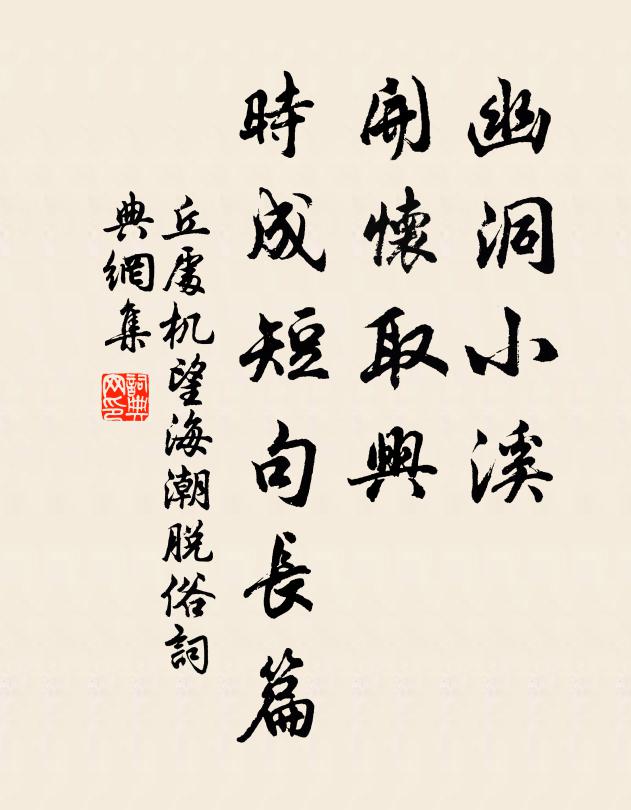 幽洞小溪
開懷取興
時成短句長篇
丘處机望海潮脱俗詞
典網集
詞典
网印